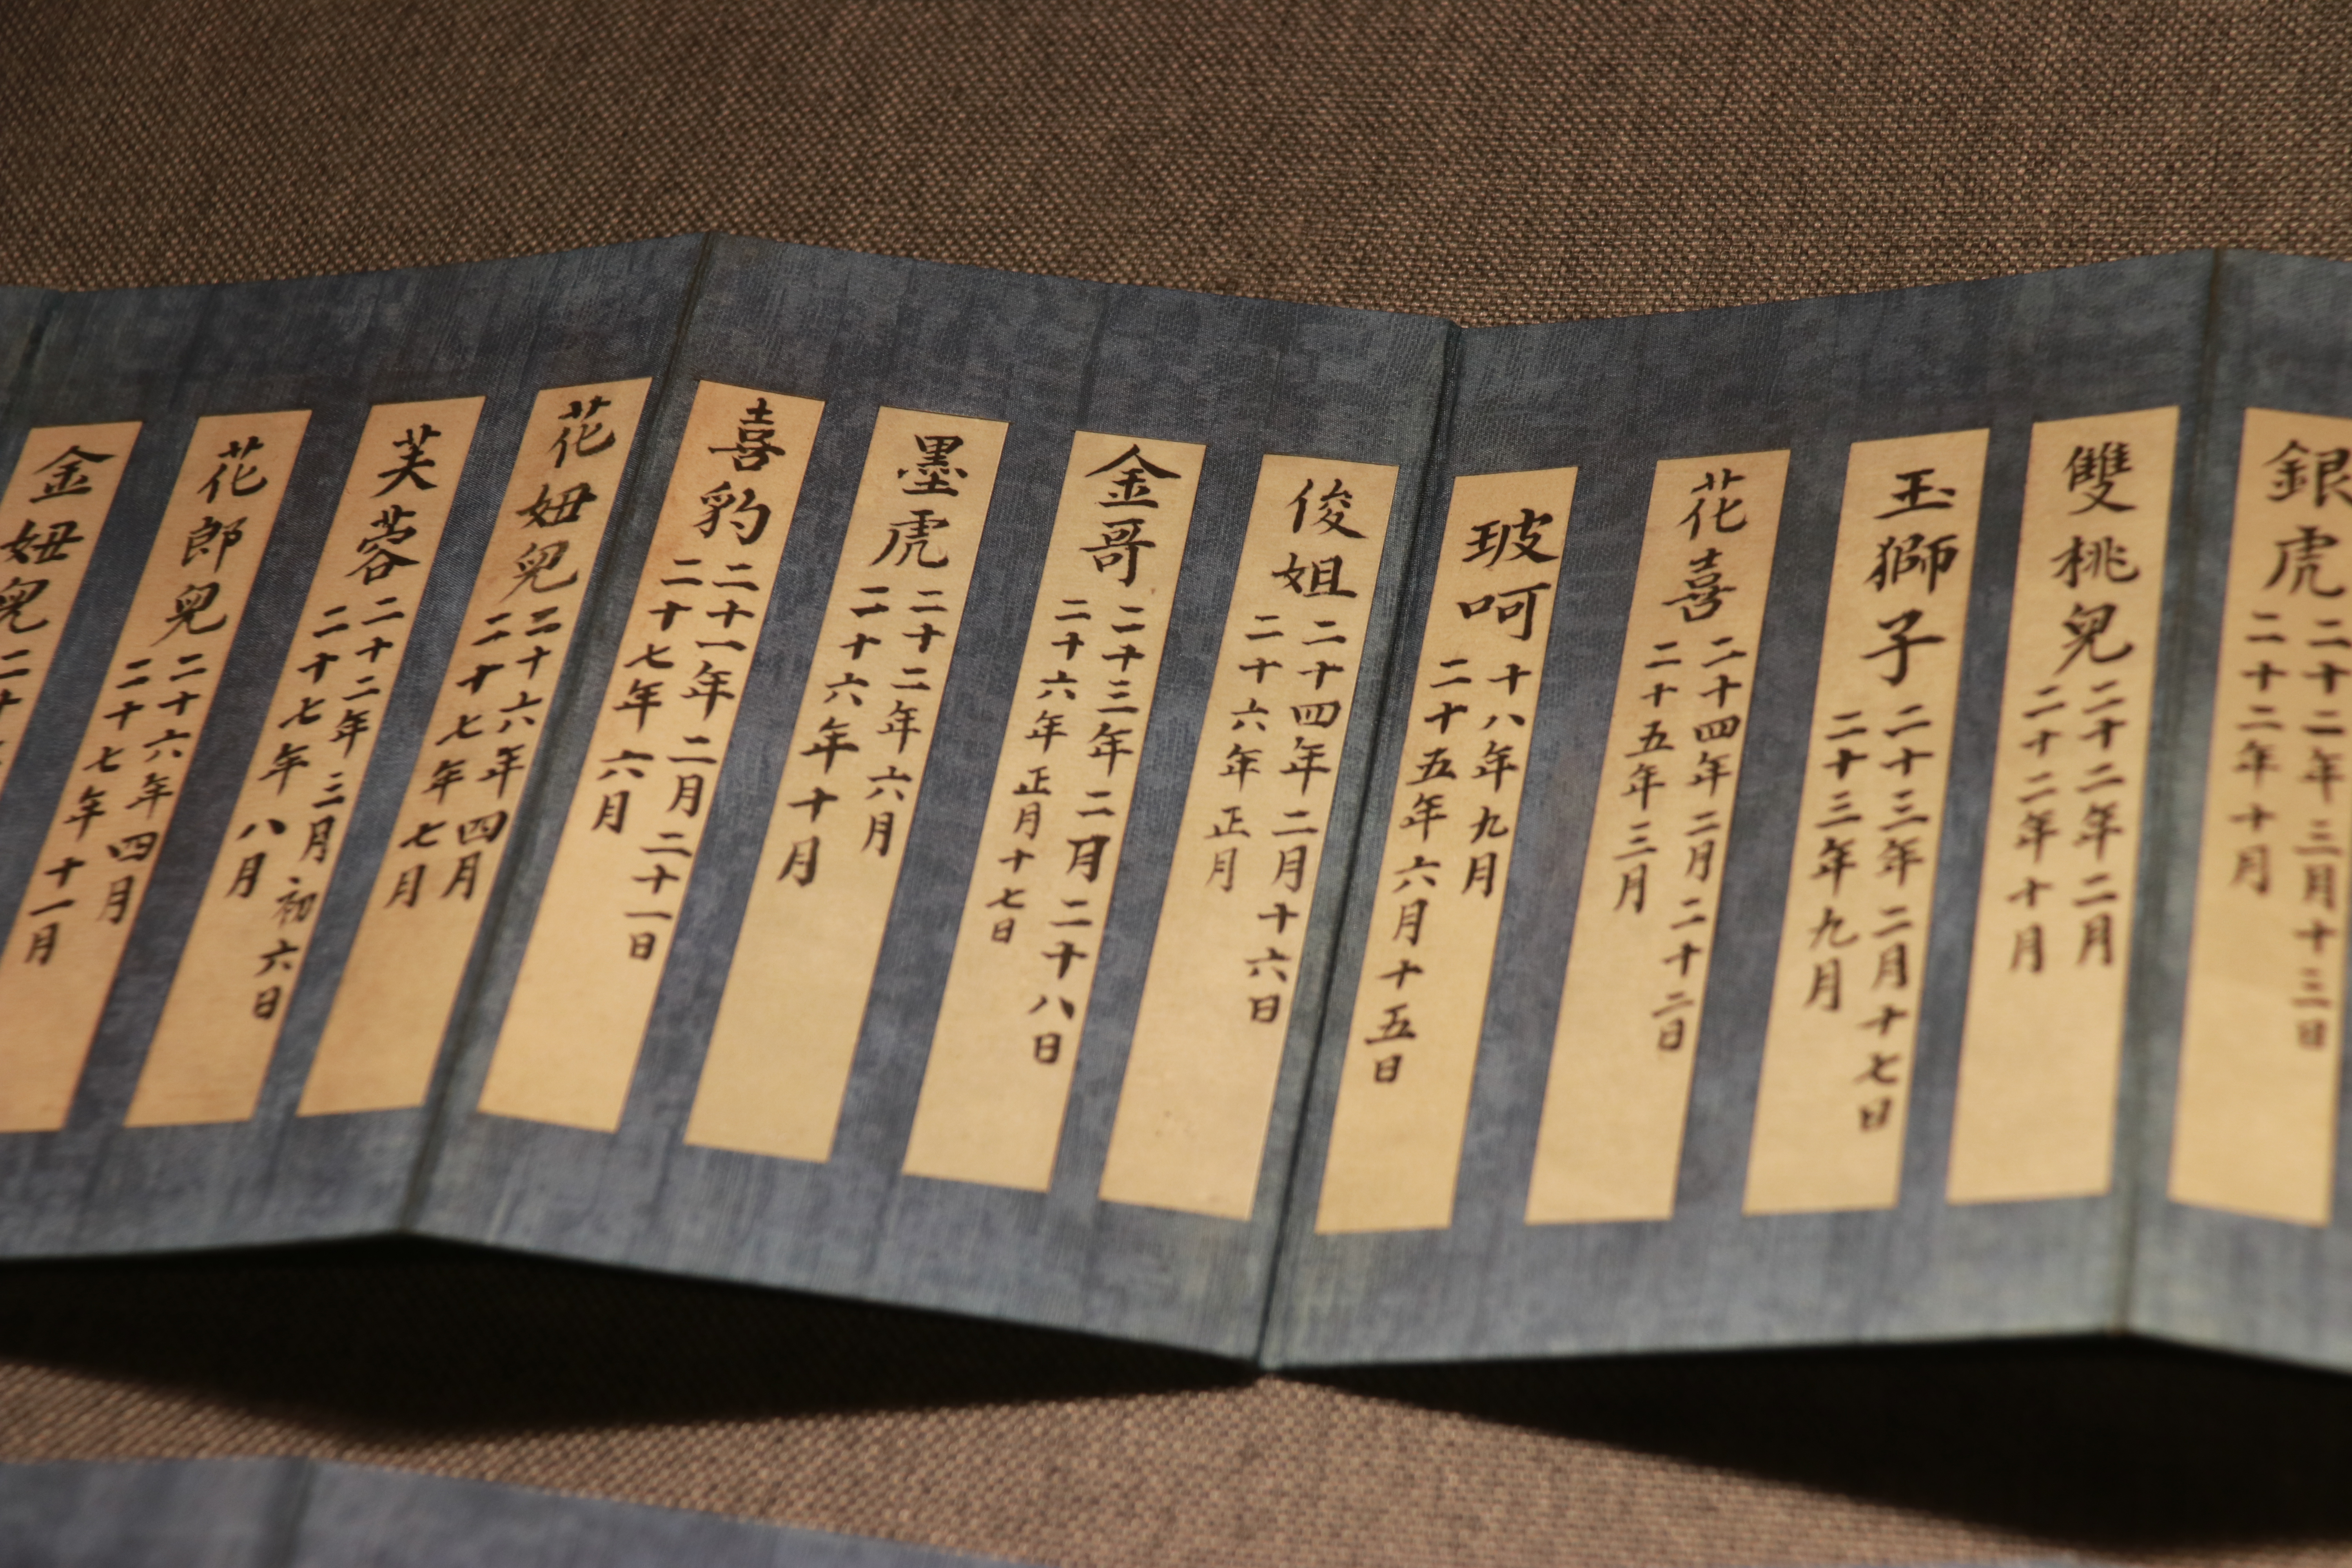 銀虎
二十二年三月十三日
二十二年十月
雙桃兒
二十二年二月
二十二年十月
玉獅子
二十三年二月十七日
二十三年九月
花喜
二十四年二月二十二日
二十五年三月
玻呵
十八年九月
二十五年六月十五日
俊姐
二十四年二月十六日
二十六年正月
金哥
二十三年二月二十八日
二十六年正月十七日
墨虎
二十二年六月
二十六年十月
喜豹
二十一年二月二十一日
二十七年六月
花妞兒
二十六年四月
二十七年七月
芙蓉
二十二年三月初六日
二十七年八月
花郎兒
二十六年四月
二十七年十一月
金妞兒